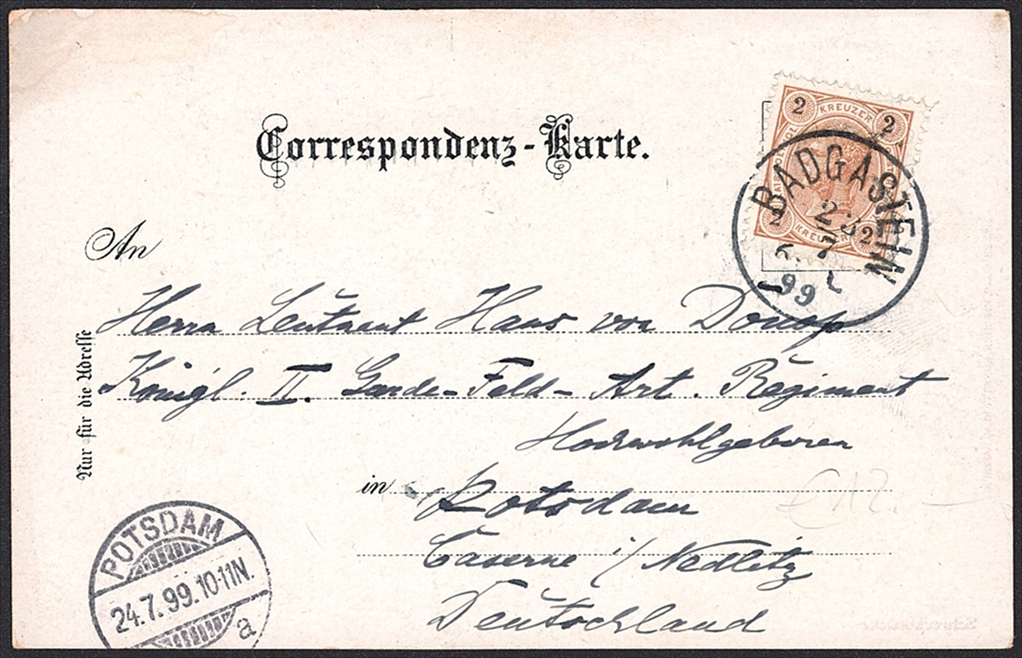 Correspondenz-Karte.
2 KREUZER 2
2 KREUZER 2
BADGASTEIN
99
An
Herrn Leutnant Hans von Donop
Königl. II. Garde-Feld-Art. Regiment
Hochwohlgeboren
in Potsdam
Caserne i/ Nedlitz
Deutschland
Nur für die Adresse
POTSDAM
24.7.99.10-11N.
a